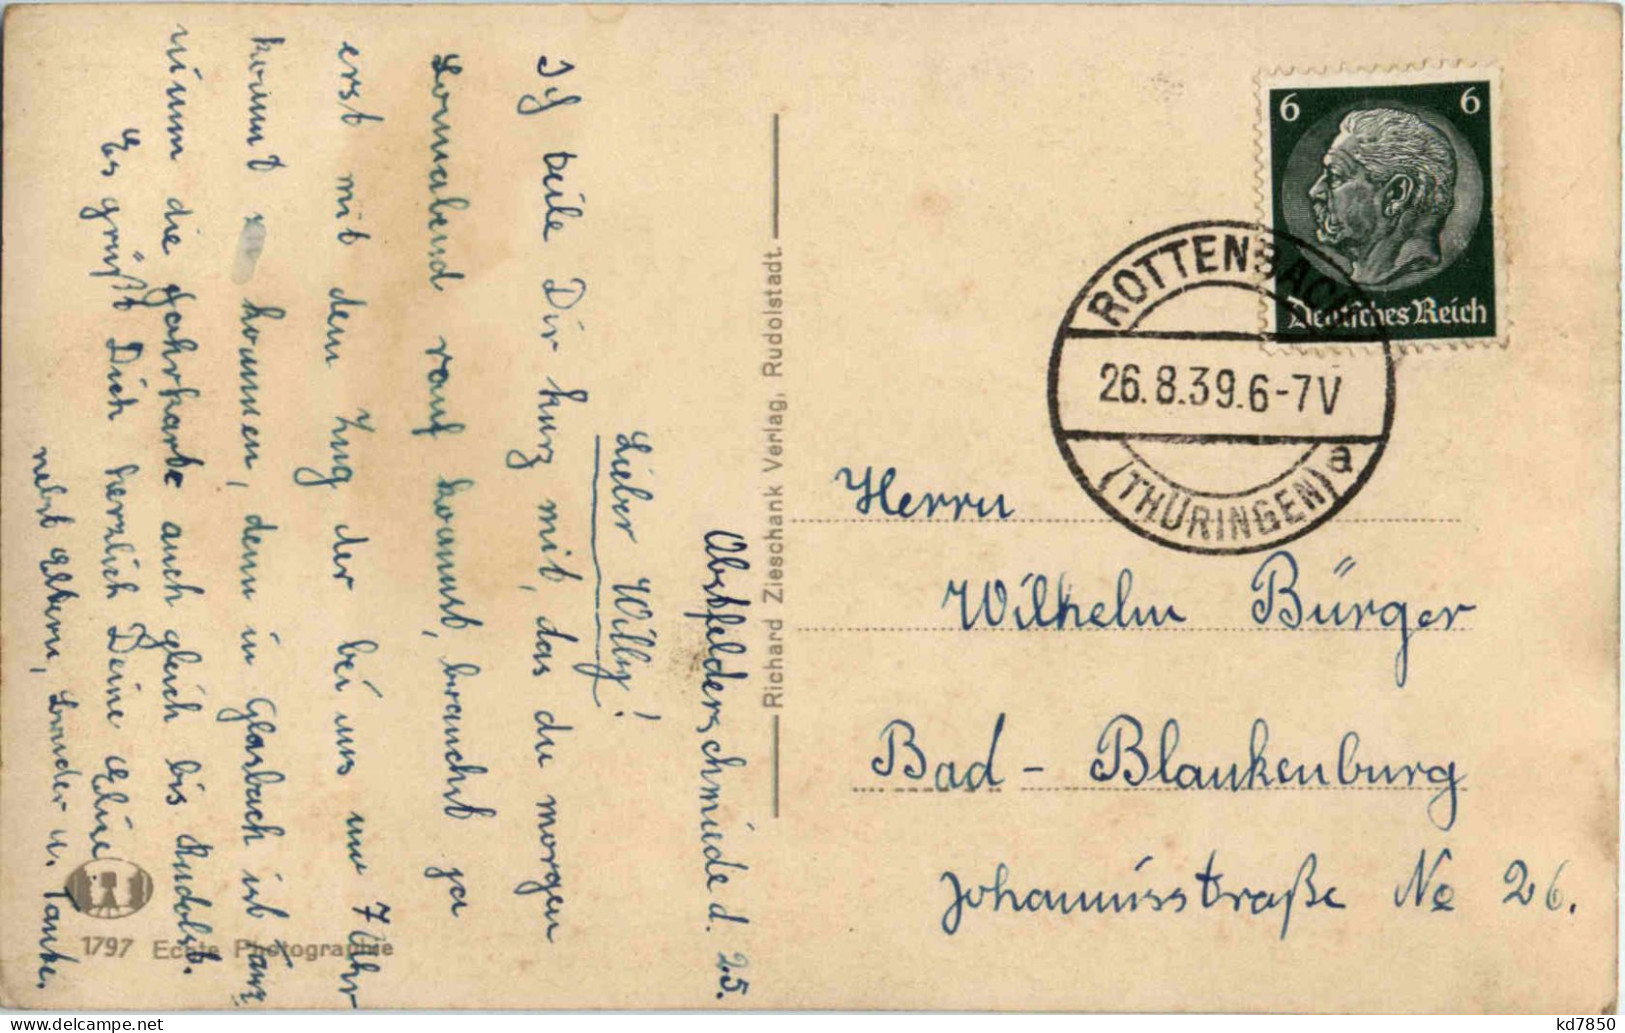 Obstfelderschmiede d. 25.
Lieber Willy!
Ich teile Dir kurz mit, das du morgen
Sonnabend rauf kommst, brauchst ja
erst mit den Zug der bei uns um 7 Uhr
kommt kommen, denn in Glasbach ist Tanz
nimm die Fahrkarte auch gleich bis Rudolst.
Es grüßt Dich herzlich Deine
nebst Eltern, Bruder u. Tante.
1797 Echte Photographie
Richard Zieschank Verlag, Rudolstadt.
6 6
Deutsches Reich
ROTTENBACH
26.8.39.6-7V
(THÜRINGEN) a
Herrn
Wilhelm Bürger
Bad-Blankenburg
Johannisstraße No 26.
kd7850